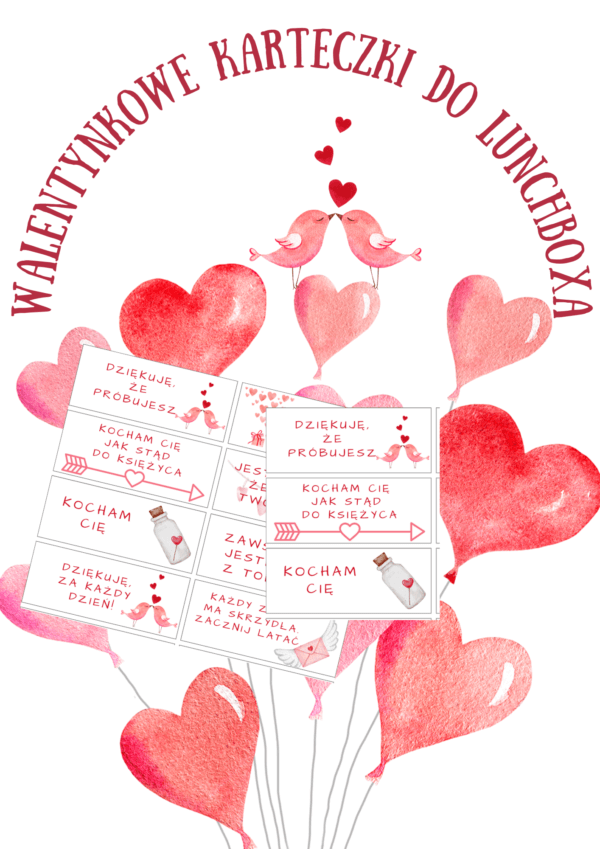 WALENTYNKOWE KARTECZKI DO LUNCHBOXA
DZIĘKUJĘ,
ŻE
PRÓBUJESZ
KOCHAM CIĘ
JAK STĄD
DO KSIĘŻYCA
KOCHAM
CIĘ
DZIĘKUJĘ,
ZA KAŻDY
DZIEŃ!
KAŻDY
MA SKRZYDŁA.
ZACZNIJ LATAĆ
DZIĘKUJĘ,
ŻE
PRÓBUJESZ
KOCHAM CIĘ
JAK STĄD
DO KSIĘŻYCA
KOCHAM
CIĘ